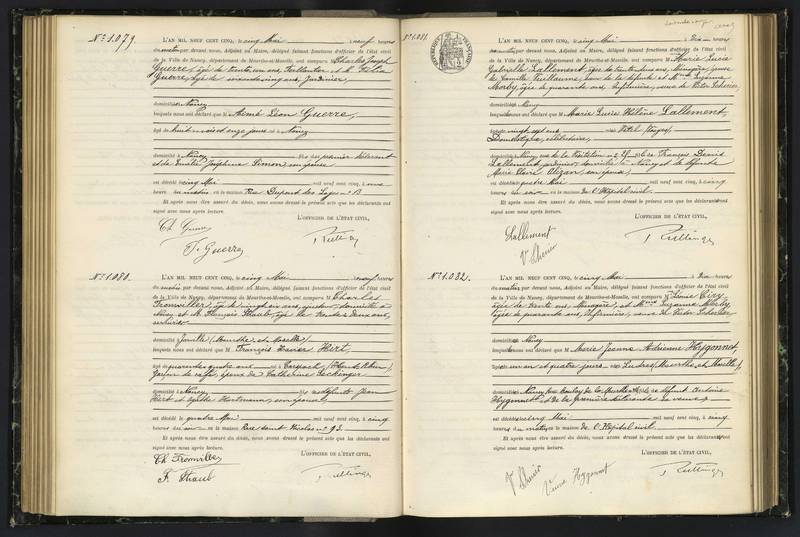 N° 1.079.
L'AN MIL NEUF CENT CINQ, le cinq Mai à neuf heures
du matin par devant nous, Adjoint au Maire, délégué faisant fonctions d'officier de l'état civil
de la Ville de Nancy, département de Meurthe-et-Moselle, ont comparu M Charles Joseph
Guerre, âgé de trente ans, et M.
Guerre, âgé de cinquante cinq ans, Jardinier,
domiciliés à Nancy
lesquels nous ont déclaré que M Aimé Léon Guerre,
âgé de huit mois et onze jours né à Nancy
domicilié à Nancy, fils du premier déclarant
et de Emilie Joséphine Simon, son épouse
est décédé le cinq Mai mil neuf cent cinq, à une
heure du matin en la maison Rue Dupont des Loges n° 13
Et après nous être assuré du décès, nous avons dressé le présent acte que les déclarants ont
signé avec nous après lecture.
L'OFFICIER DE L'ÉTAT CIVIL,
Ch Guerre
Guerre
N° 1.080.
L'AN MIL NEUF CENT CINQ, le cinq Mai à neuf heures
du matin par devant nous, Adjoint au Maire, délégué faisant fonctions d'officier de l'état civil
de la Ville de Nancy, département de Meurthe-et-Moselle, ont comparu M Charles
Fromviller, âgé de vingt ans, domicilié à
Nancy et M. François Staub, âgé de trente deux ans,
domicilié à Jarville (Meurthe et Moselle)
lesquels nous ont déclaré que M François Xavier Hirt,
âgé de quarante quatre ans né à Carspach (Haut Rhin)
garçon de café, époux de Catherine
domicilié à Nancy, fils de défunts Jean
Hirt et Agathe Hartmann, son épouse
est décédé le quatre Mai mil neuf cent cinq, à cinq
heures du soir en la maison Rue Saint Nicolas n° 93.
Et après nous être assuré du décès, nous avons dressé le présent acte que les déclarants ont
signé avec nous après lecture.
L'OFFICIER DE L'ÉTAT CIVIL,
Ch Fromviller
F. Staub
N° 1.081.
L'AN MIL NEUF CENT CINQ, le cinq Mai à dix heures
du matin par devant nous, Adjoint au Maire, délégué faisant fonctions d'officier de l'état civil
de la Ville de Nancy, département de Meurthe-et-Moselle, ont comparu M Marie Lucie
Gabrielle Lallement, âgée de trente ans, Ménagère, femme
de Camille Vuillaume, sœur de la défunte et Mme Suzanne
Morby, âgée de quarante ans, Infirmière, veuve de Victor Scherier
domiciliées à Nancy
lesquelles nous ont déclaré que M Marie Lucie Hélène Lallement,
âgée de vingt sept ans, née à Vittel, Vosges,
Domestique, célibataire,
domiciliée à Nancy, rue de la Visitation n° fille de François
Lallement, jardinier, domicilié à Nancy et de défunte
Marie son épouse,
est décédée le quatre Mai mil neuf cent cinq, à cinq
heures du soir en la maison de l'Hôpital civil.
Et après nous être assuré du décès, nous avons dressé le présent acte que les déclarants ont
signé avec nous après lecture.
L'OFFICIER DE L'ÉTAT CIVIL,
Lallement
V. Scherier
N° 1.082.
L'AN MIL NEUF CENT CINQ, le cinq Mai à dix heures
du matin par devant nous, Adjoint au Maire, délégué faisant fonctions d'officier de l'état civil
de la Ville de Nancy, département de Meurthe-et-Moselle, ont comparu M Léonie Ciry
âgée de trente ans, Ménagère et Mme Suzanne Morby,
âgée de quarante ans, Infirmière, veuve de Victor Scherier
domiciliées à Nancy
lesquelles nous ont déclaré que M Marie Jeanne Adrienne Hygonnet,
âgée de un an et quatre jours née à Ludres, Meurthe et Moselle,
domiciliée à Nancy, fille de défunt Antoine
Hygonnet et de la première déclarante sa veuve
est décédée le cinq Mai mil neuf cent cinq, à cinq
heures du matin en la maison de l'Hôpital civil.
Et après nous être assuré du décès, nous avons dressé le présent acte que les déclarants ont
signé avec nous après lecture.
L'OFFICIER DE L'ÉTAT CIVIL,
V. Scherier
Veuve Hygonnet